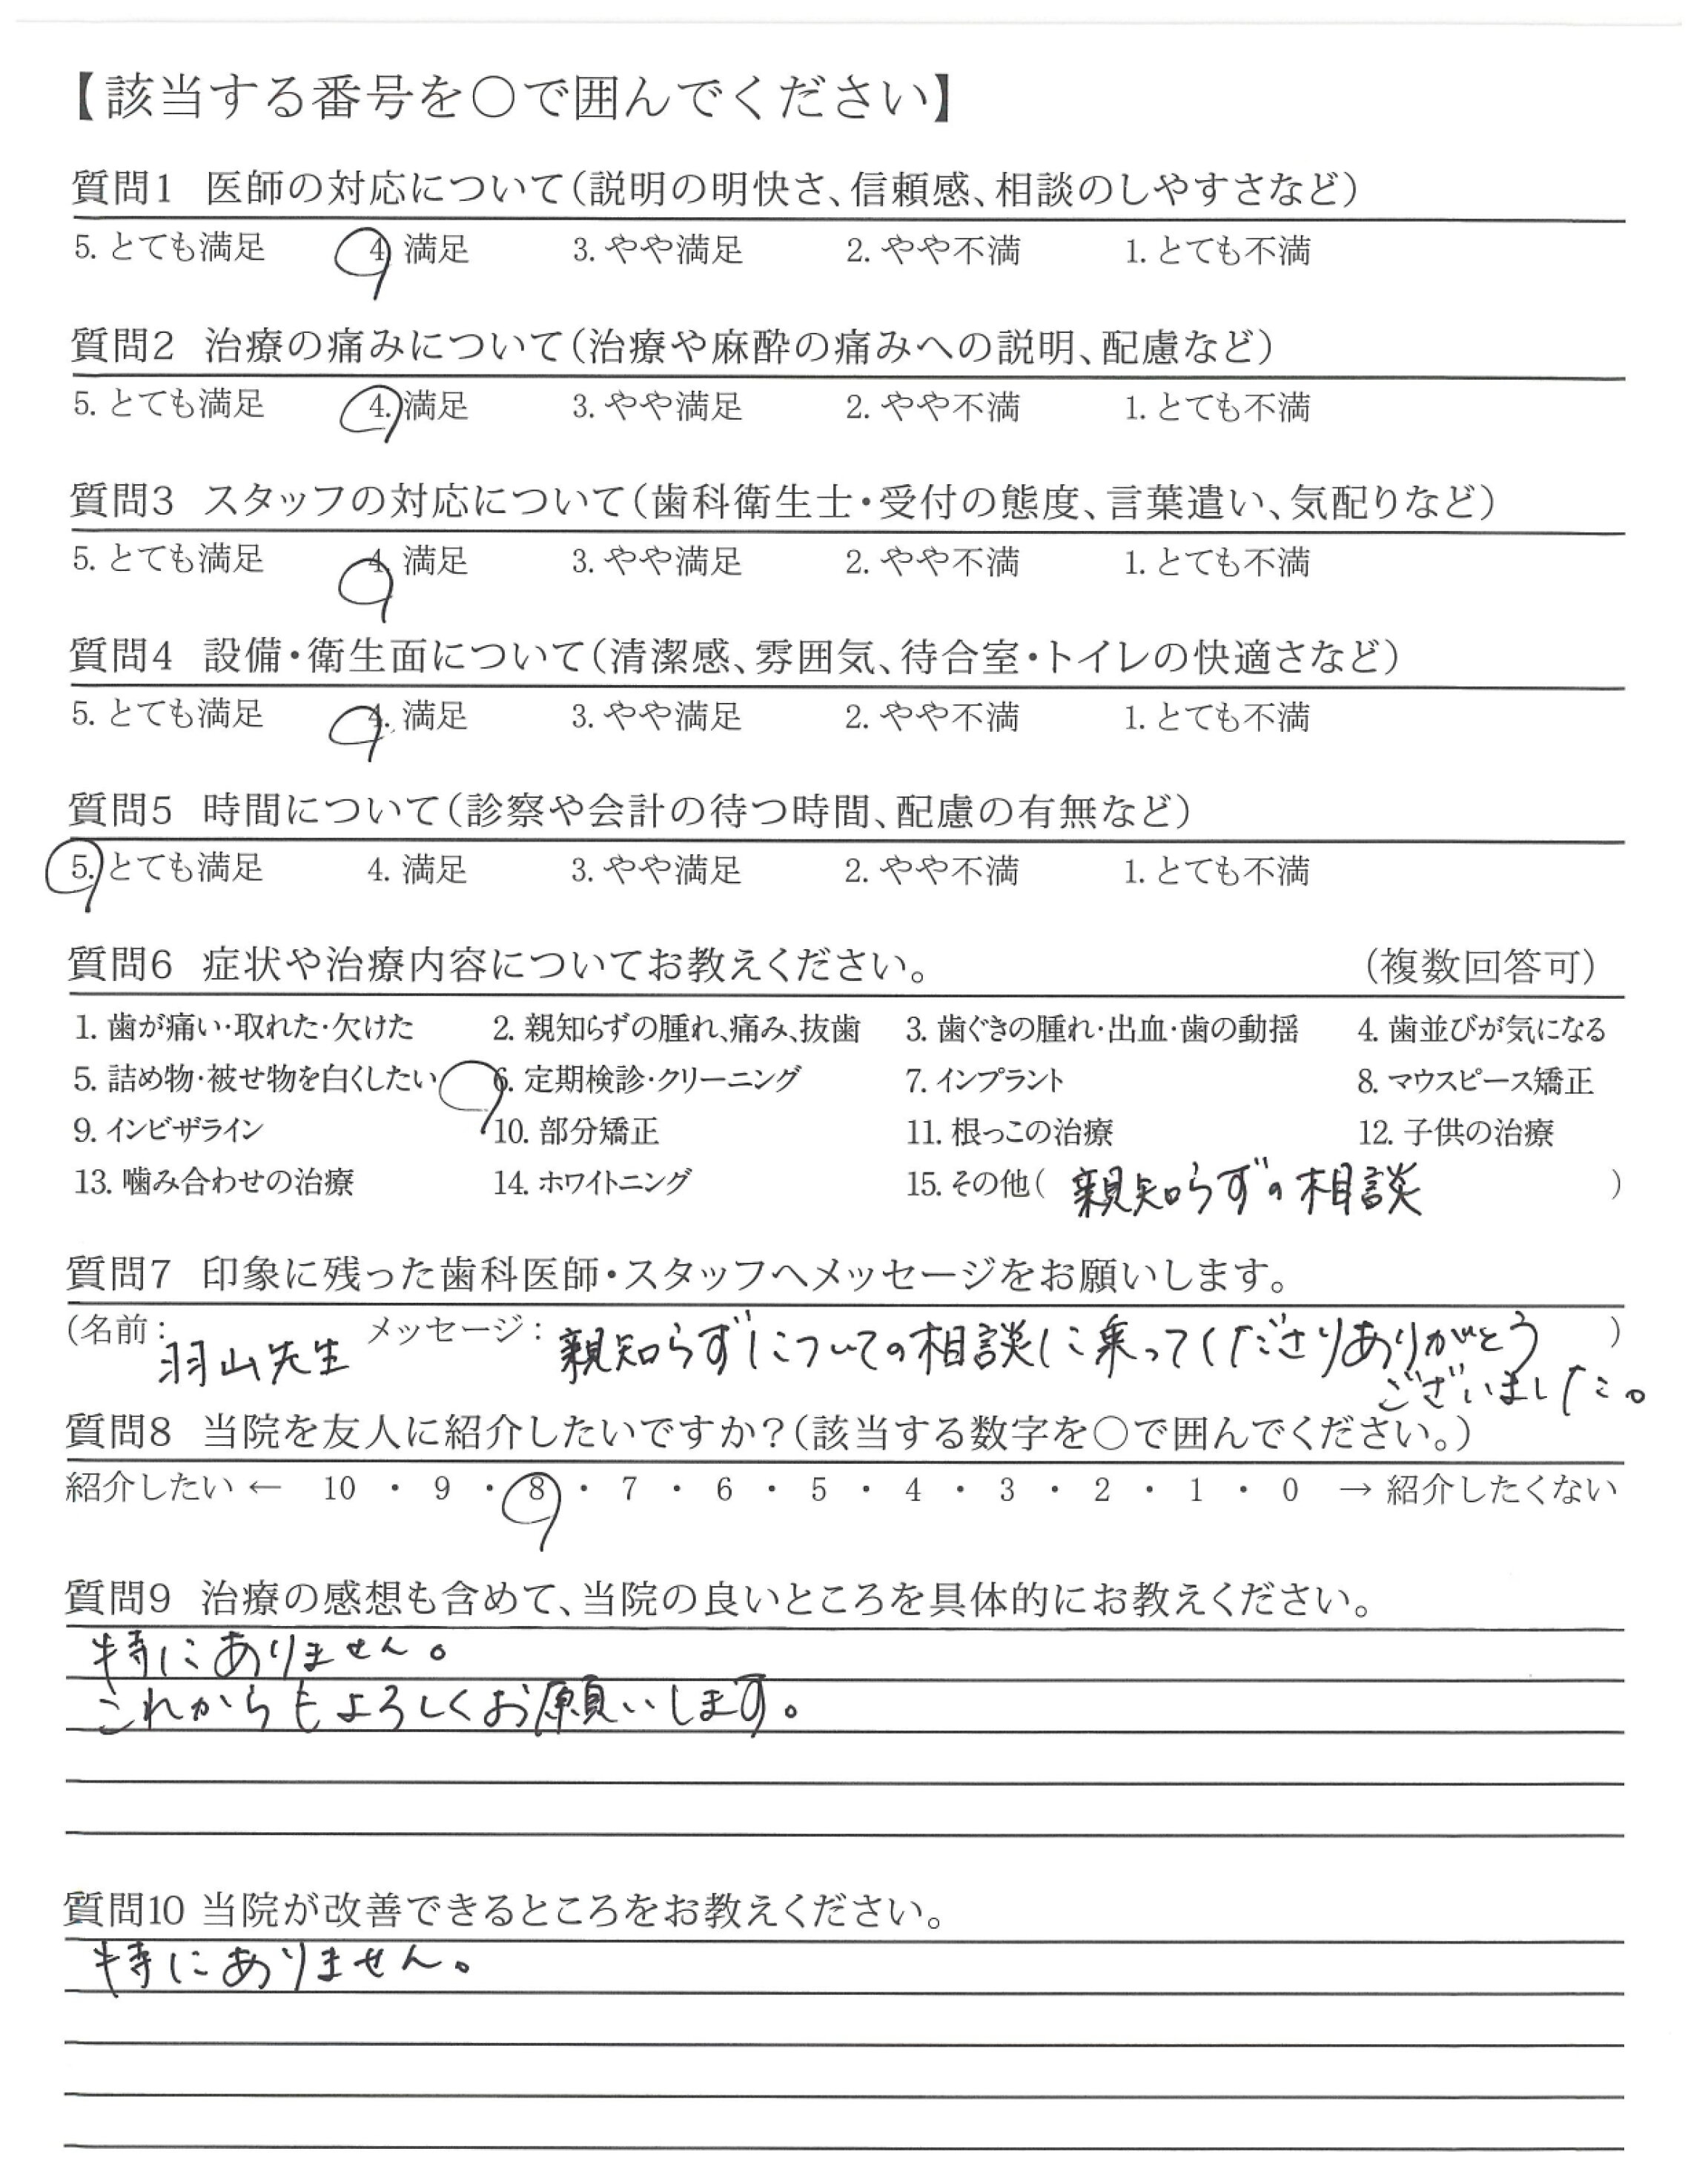 【該当する番号を〇で囲んでください】
質問1 医師の対応について(説明の明快さ、信頼感、相談のしやすさなど)
5. とても満足 4. 満足 3. やや満足 2. やや不満 1. とても不満
質問2 治療の痛みについて(治療や麻酔の痛みへの説明、配慮など)
5. とても満足 4. 満足 3. やや満足 2. やや不満 1. とても不満
質問3 スタッフの対応について(歯科衛生士・受付の態度、言葉遣い、気配りなど)
5. とても満足 4. 満足 3. やや満足 2. やや不満 1. とても不満
質問4 設備・衛生面について(清潔感、雰囲気、待合室・トイレの快適さなど)
5. とても満足 4. 満足 3. やや満足 2. やや不満 1. とても不満
質問5 時間について(診察や会計の待つ時間、配慮の有無など)
5. とても満足 4. 満足 3. やや満足 2. やや不満 1. とても不満
質問6 症状や治療内容についてお教えください。 (複数回答可)
1. 歯が痛い・取れた・欠けた 2. 親知らずの腫れ、痛み、抜歯 3. 歯ぐきの腫れ・出血・歯の動揺 4. 歯並びが気になる
5. 詰め物・被せ物を白くしたい 6. 定期検診・クリーニング 7. インプラント 8. マウスピース矯正
9. インビザライン 10. 部分矯正 11. 根っこの治療 12. 子供の治療
13. 噛み合わせの治療 14. ホワイトニング 15. その他( 親知らずの相談 )
質問7 印象に残った歯科医師・スタッフへメッセージをお願いします。
(名前: 羽山先生 メッセージ: 親知らずについての相談に乗ってくださりありがとう )
ございました。
質問8 当院を友人に紹介したいですか?(該当する数字を〇で囲んでください。)
紹介したい ← 10 ・ 9 ・ 8 ・ 7 ・ 6 ・ 5 ・ 4 ・ 3 ・ 2 ・ 1 ・ 0 → 紹介したくない
質問9 治療の感想も含めて、当院の良いところを具体的にお教えください。
特にありません。
これからもよろしくお願いします。
質問10 当院が改善できるところをお教えください。
特にありません。